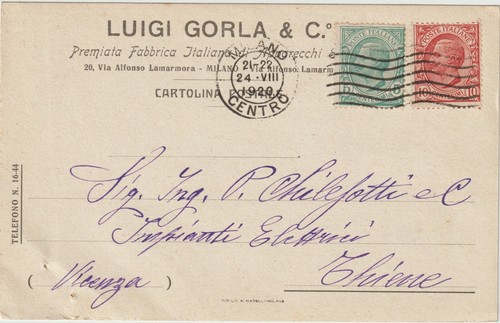 LUIGI GORLA & C.º
Premiata Fabbrica Italiana di Apparecchi
20, Via Alfonso Lamarmora - MILANO - Via Alfonso Lamarm
CARTOLINA POSTALE
MILANO
21-22
24·VIII
1920
CENTRO
POSTE ITALIANE
5
POSTE ITALIANE
10 10
TELEFONO N. 16-44
Sig. Ing. P. Chilesotti e C
Impianti Elettrici
Thiene
(Vicenza)